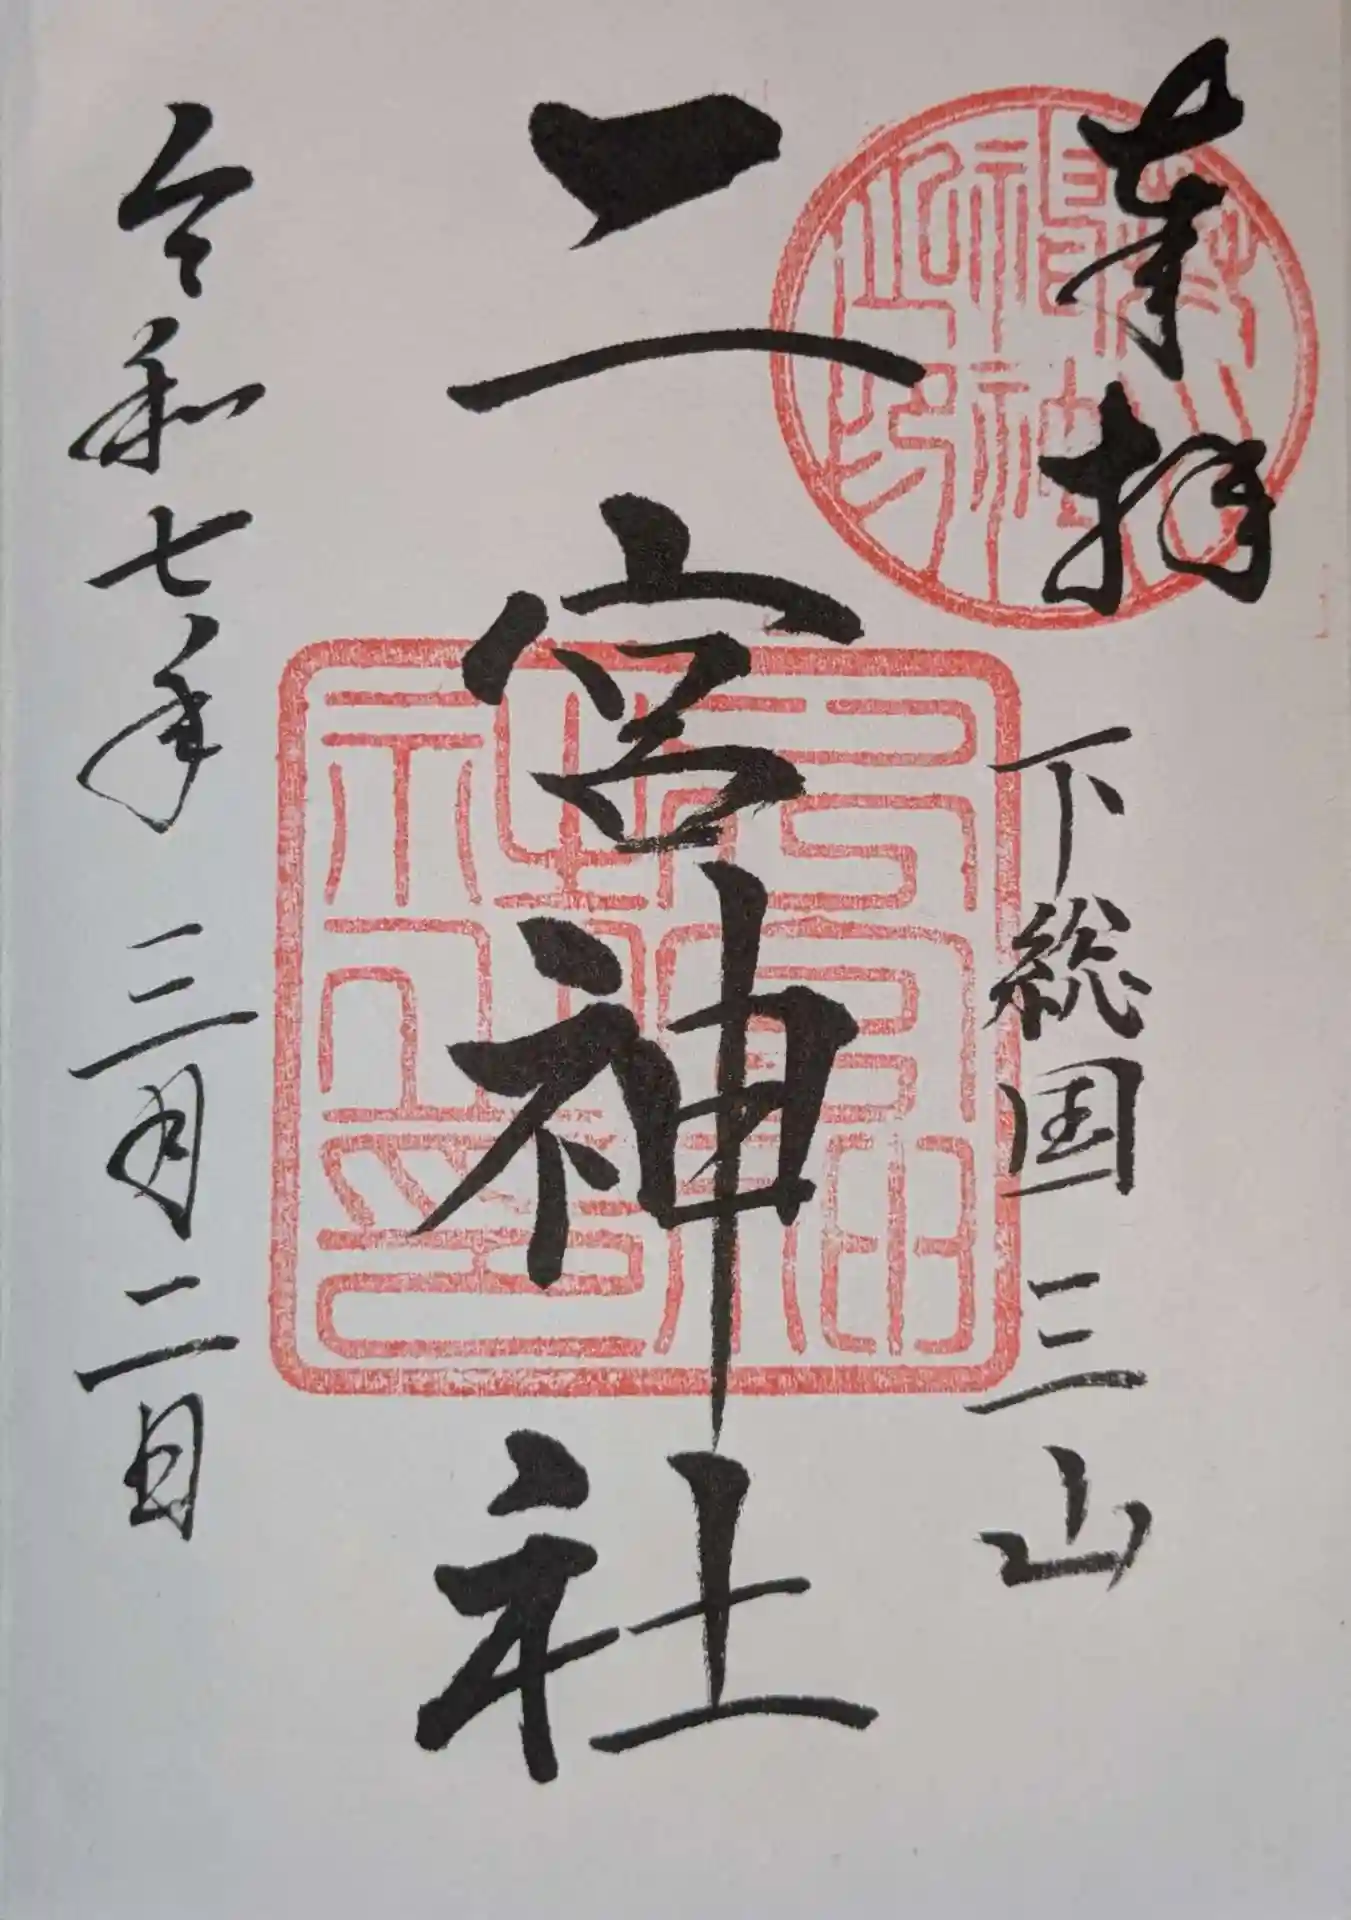 奉拝
下総国三山
二宮神社
令和七年三月二日